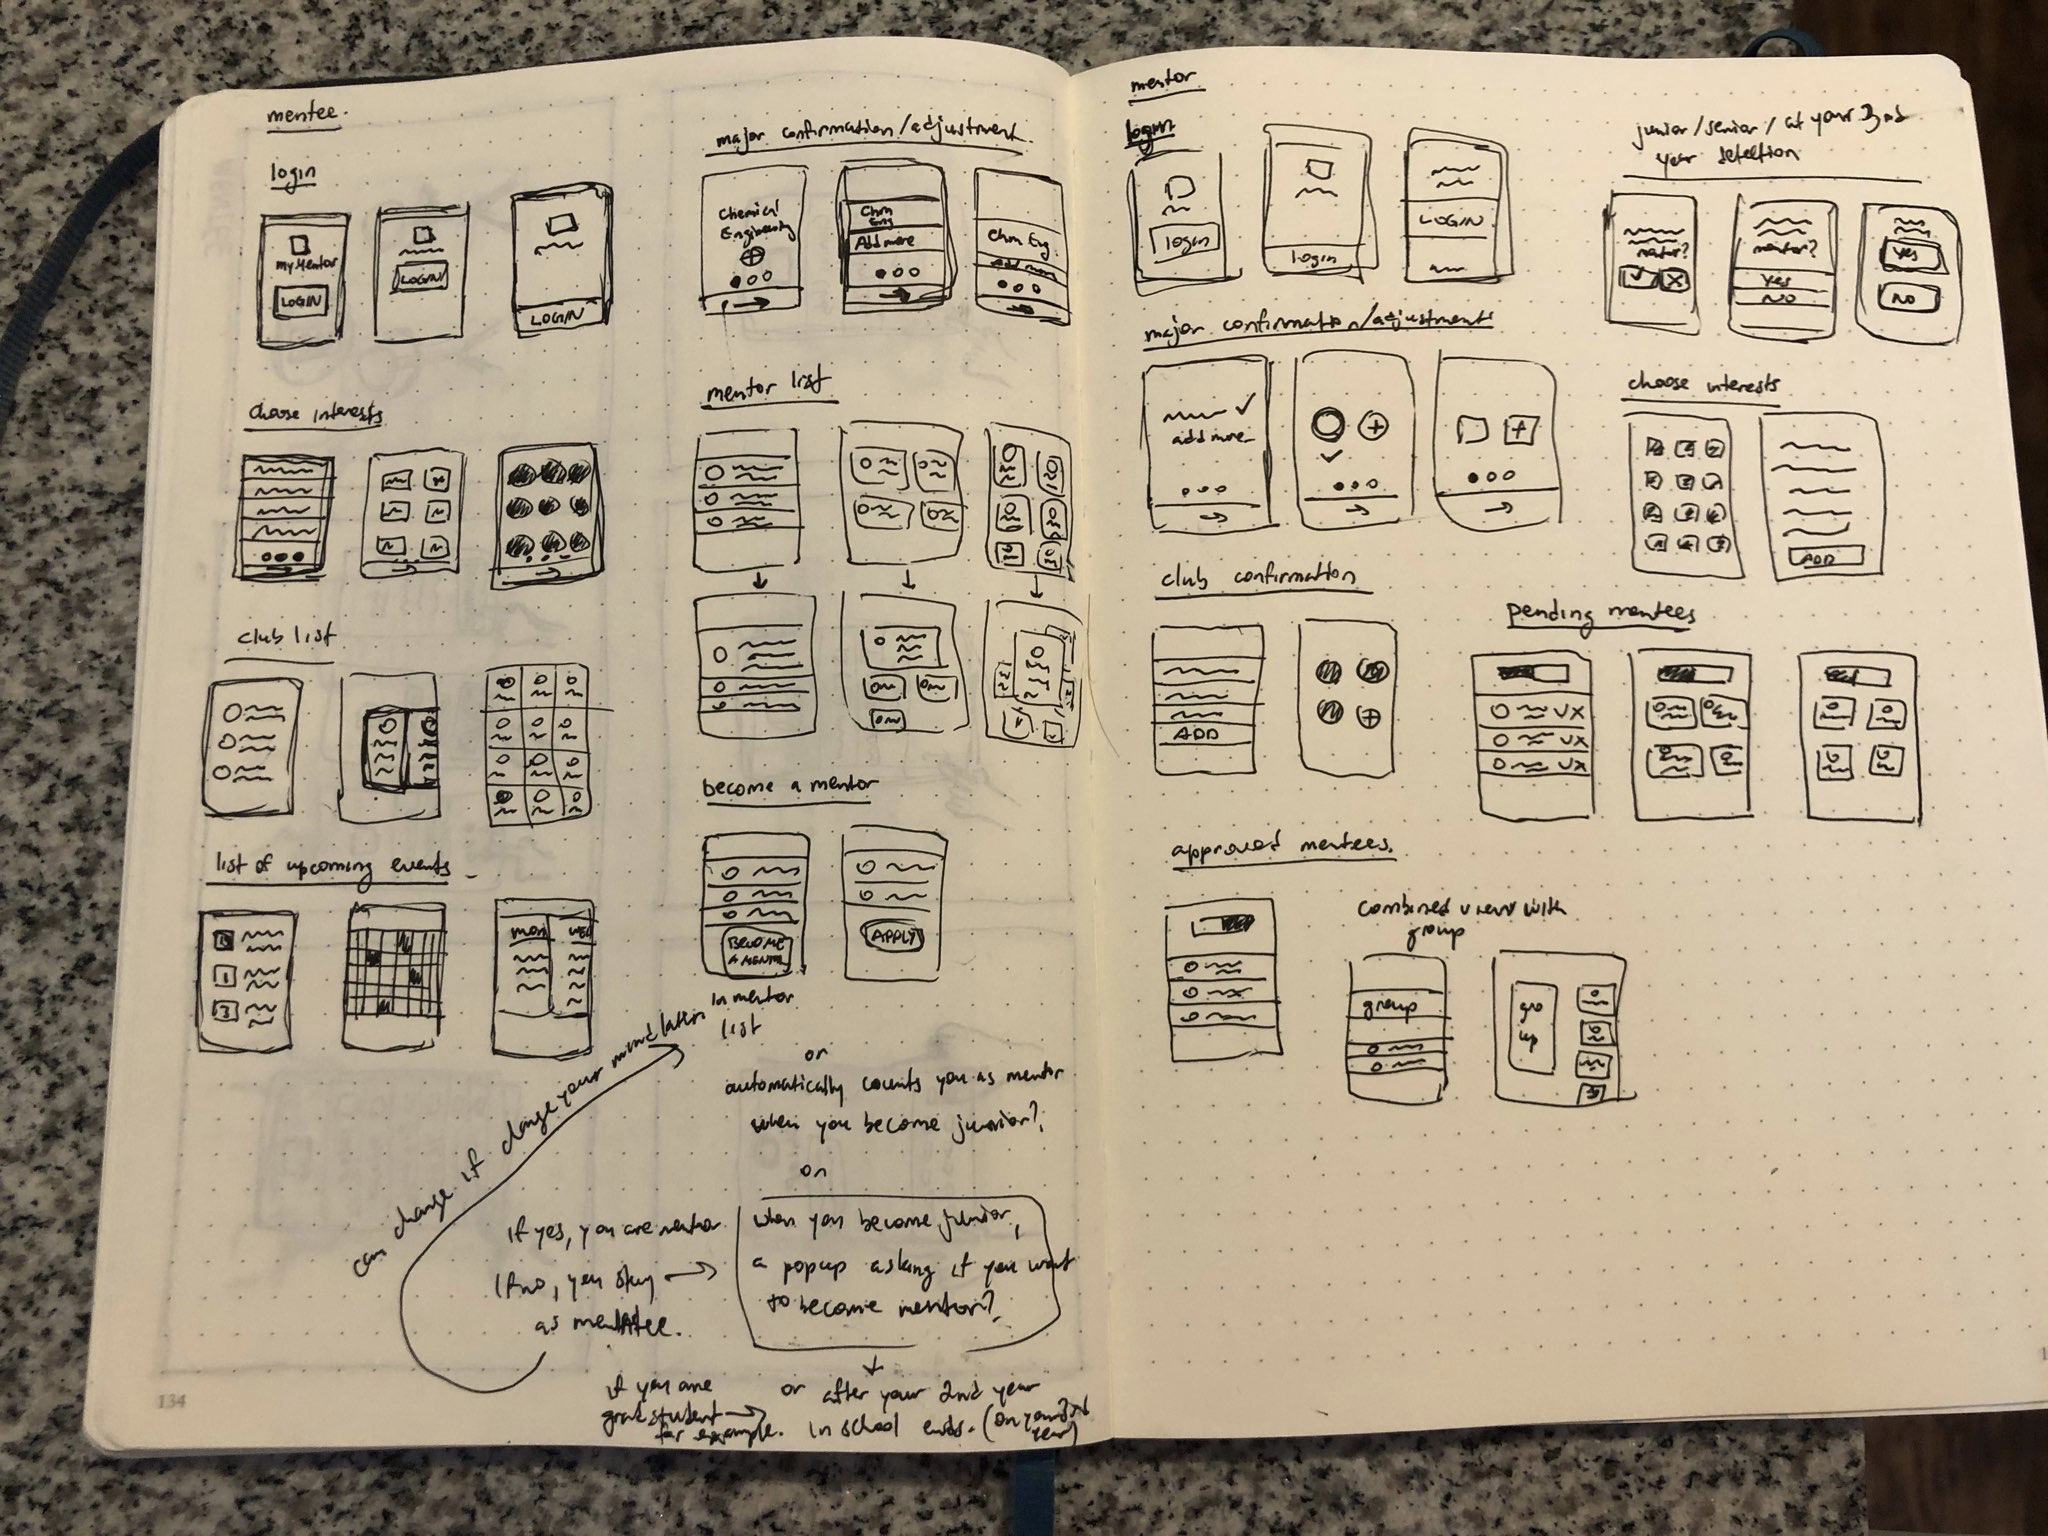 mentee.
login
my Mentor
LOGIN
LOGIN
LOGIN
choose interests
club list
list of upcoming events
1
3
mon
WED
major confirmation/adjustment
Chemical
Engineering
Chm
Eng
Add more
Chm Eng
Add more
mentor list
become a mentor
BECOME
A MENTOR
APPLY
In mentor
list
or
automatically counts you as mentor
when you become junior?
or
when you become junior,
a popup asking if you want
to become mentor?
If yes, you are mentor
If no, you stay
as mentee.
can change if change your mind later
or after your 2nd year
in school ends. (on your 3rd
year)
if you are
grad student
for example.
134
mentor
login
login
login
LOGIN
junior/senior/at your 3rd
year selection
mentor?
mentor?
yes
NO
yes
NO
major confirmation/adjustment
add more
choose interests
ADD
club confirmation
ADD
pending mentees
approved mentees.
combined view with
group
group
gro
up